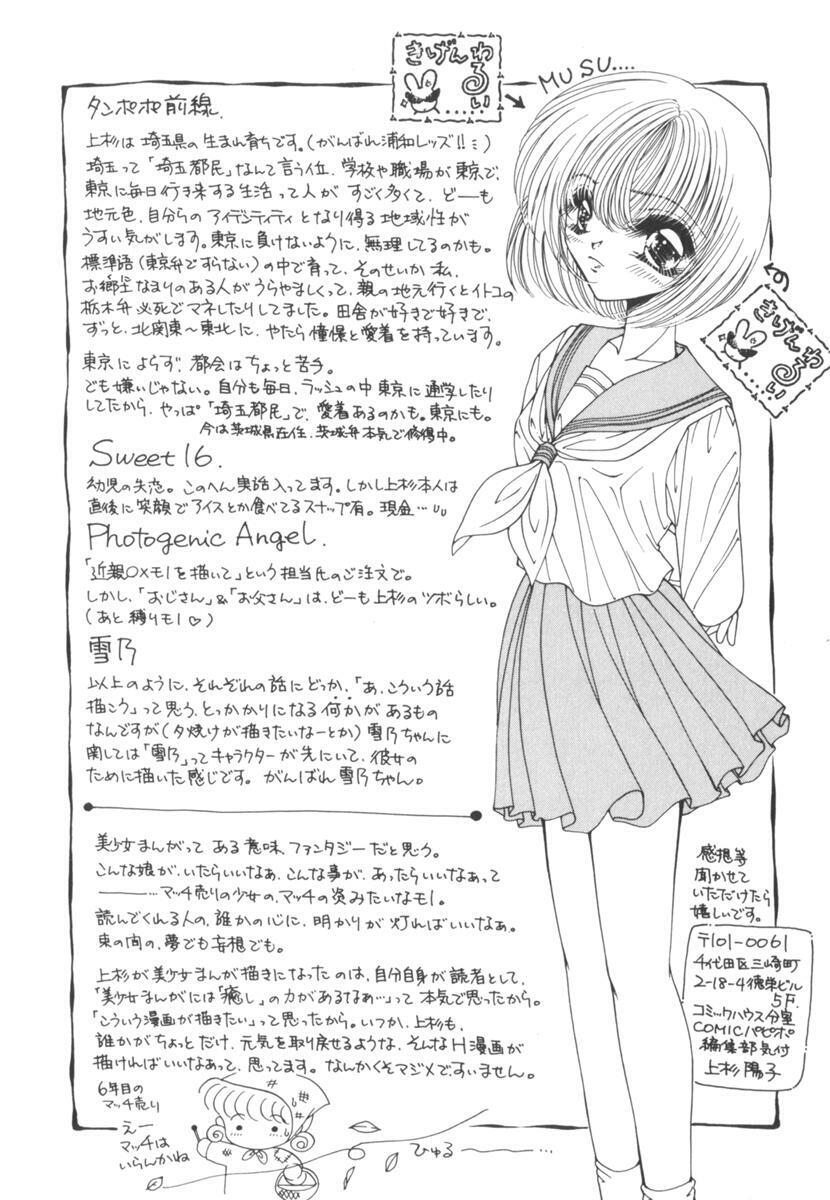 きげんわるい……
MUSU....
タンポポ前線.
上杉は埼玉県の生まれ育ちです。(がんばれ浦和レッズ!!ミ)
埼玉って「埼玉都民」なんて言う位、学校や職場が東京で、
東京に毎日行き来する生活って人がすごく多くて、どーも
地元色、自分らのアイデンティティとなり得る地域性が
うすい気がします。東京に負けないように、無理してるのかも。
標準語(東京弁ですらない)の中で育って、そのせいか私、
お郷土なまりのある人がうらやましくって、親の地元行くとイトコの
栃木弁必死でマネしたりしてました。田舎が好きで好きで、
ずっと、北関東〜東北に、やたら憧憬と愛着を持っています。
東京によらず、都会はちょっと苦手。
でも嫌いじゃない。自分も毎日、ラッシュの中東京に通学したり
してたから、やっぱ「埼玉都民」で、愛着あるのかも。東京にも。
今は茨城県在住、茨城弁本気で修得中。
Sweet 16.
幼児の失恋。このへん実話入ってます。しかし上杉本人は
直後に笑顔でアイスとか食べてるスナップ有。現金…
Photogenic Angel.
「近親○×モノを描いて」という担当氏のご注文で。
しかし、「おじさん」&「お父さん」は、どーも上杉のツボらしい。
(あと縛りモノ♡)
雪乃
以上のように、それぞれの話にどっか、「あ、こういう話
描こう」って思う、とっかかりになる何かがあるもの
なんですが(夕焼けが描きたいなーとか)雪乃ちゃんに
関しては「雪乃」ってキャラクターが先にいて、彼女の
ために描いた感じです。がんばれ雪乃ちゃん。
美少女まんがってある意味、ファンタジーだと思う。
こんな娘が、いたらいいなぁ、こんな事が、あったらいいなぁって
―――…マッチ売りの少女の、マッチの炎みたいなモノ。
読んでくれる人の、誰かの心に、明かりが灯ればいいなぁ。
束の間の、夢でも妄想でも。
上杉が美少女まんが描きになったのは、自分自身が読者として、
「美少女まんがには『癒し』の力があるなぁ…」って本気で思ったから。
「こういう漫画が描きたい」って思ったから。いつか、上杉も、
誰かがちょっとだけ、元気を取り戻せるような、そんなH漫画が
描ければいいなぁって、思ってます。なんかくそマジメですいません。
6年目の
マッチ売り
えー
マッチは
いらんかね
ひゅる――…
きげんわるい……
感想等
聞かせて
いただけたら
嬉しいです。
〒101-0061
千代田区三崎町
2-18-4徳栄ビル
5F.
コミックハウス分室
COMICパピポ
編集部気付
上杉陽子